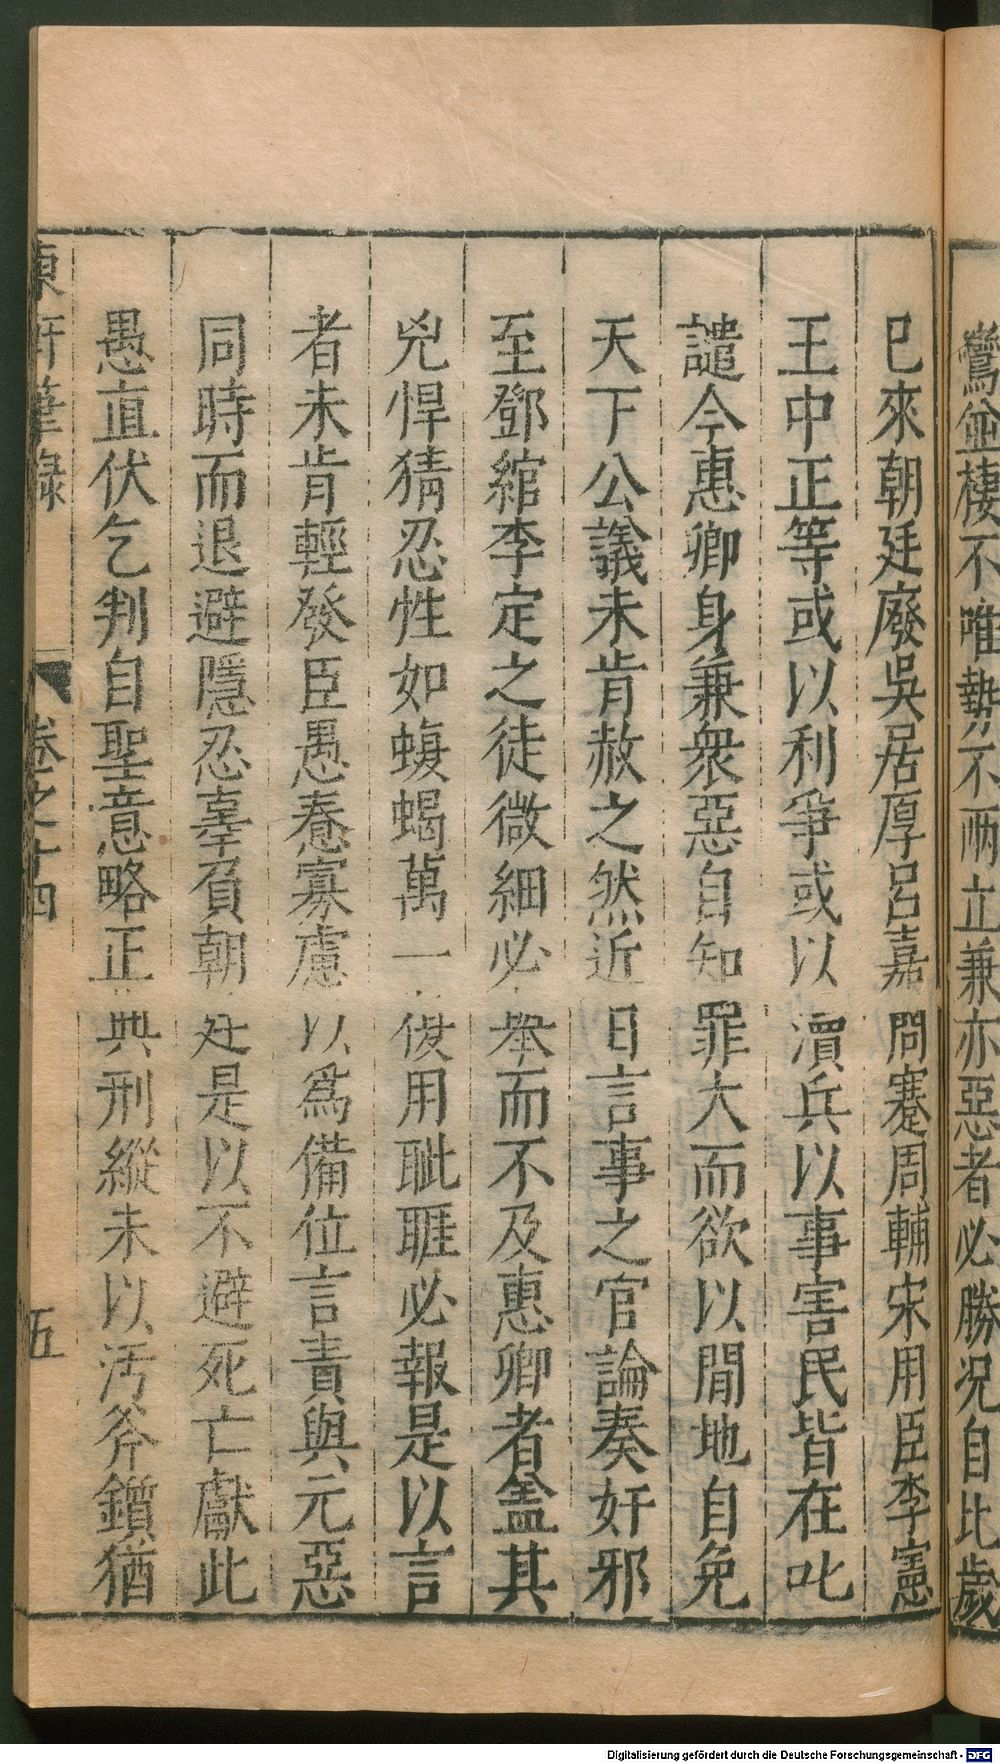 鸞並棲不唯勢不兩立兼亦惡者必勝况自比歲
已來朝廷廢吳居厚呂嘉問蹇周輔宋用臣李憲
王中正等或以利爭或以瀆兵以事害民皆在叱
譴今惠卿身兼衆惡自知罪大而欲以閒地自免
天下公議未肯赦之然近日言事之官論奏奸邪
至鄧綰李定之徒微細必舉而不及惠卿者盖其
兇悍猜忍性如蝮蝎萬一復用眦睚必報是以言
者未肯輕發臣愚惷寡慮以爲備位言責與元惡
同時而退避隱忍辜負朝廷是以不避死亡獻此
愚直伏乞判自聖意略正典刑縱未以汚斧鑕猶
東軒筆錄 卷之十四 五
Digitalisierung gefördert durch die Deutsche Forschungsgemeinschaft - DFG